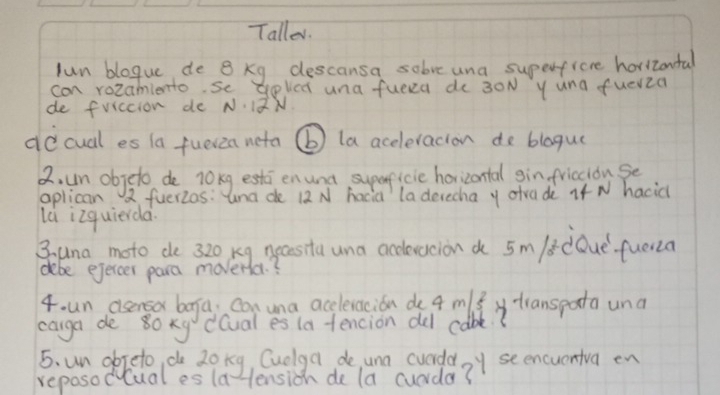 Taller.
1un bloque de 8 kg descansa sobre una superficie horizontal
con rozamiento. Se aplica una fuerza de 30N y una fuerza
de fricción de N. 12N.
a¿ cual es la fuerza neta b la aceleracion de bloque
2. un objeto de 10 kg está en una superficie horizontal sin fricción se
aplican 2 fuerzos: una de 12 N hacia la derecha y otra de N hacia
la izquierda.
3. una moto de 320 kg necesita una aceleración de 5 m/s² ¿Qué fuerza
debe ejercer para moverla.?
4. un asensor baja. Con una aceleración de 4 m/s² y transporta una
carga de 80 kg ¿Cual es la tención del cable?
5. un objeto de 20 kg Cuelga de una cuerda y se encuentra en
reposo ¿Cual es la tensión de la cuerda?